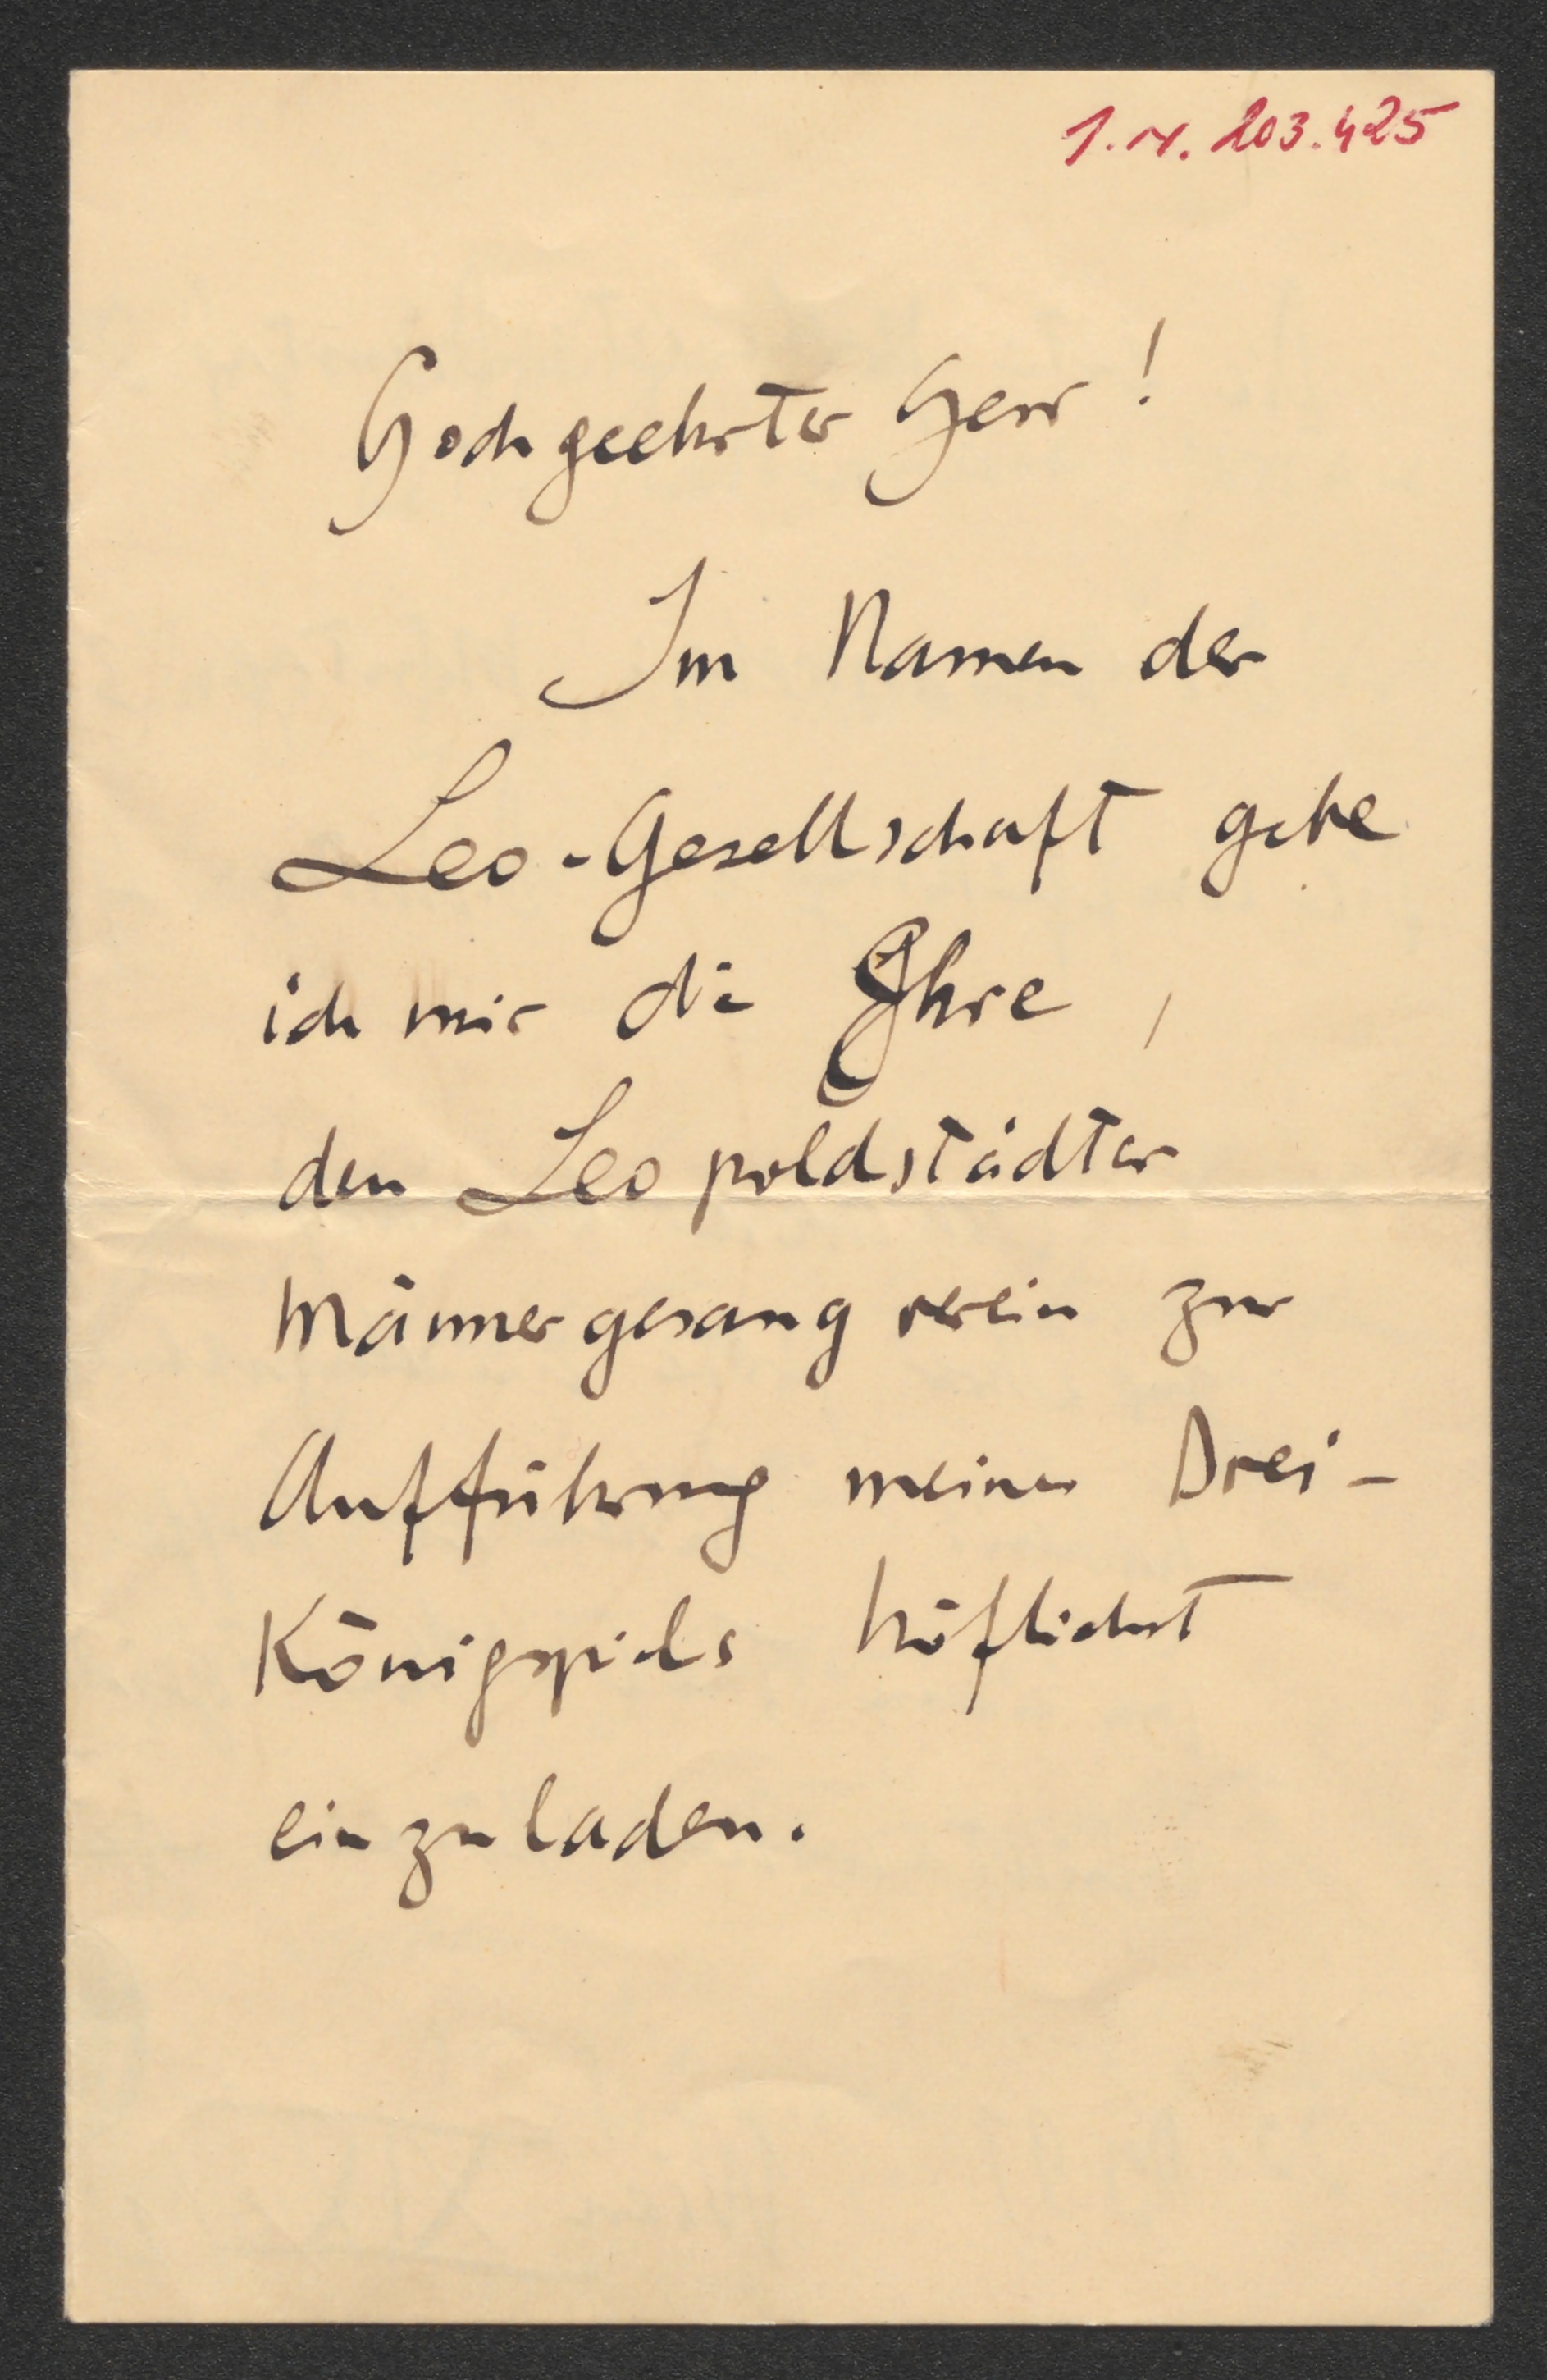 I.N. 203.425
Hochgeehrter Herr!
Im Namen der
Leo-Gesellschaft gebe
ich mir die Ehre,
den Leopoldstädter
Männergesangverein zur
Aufführung meines Drei-
Königspiels höflichst
einzuladen.